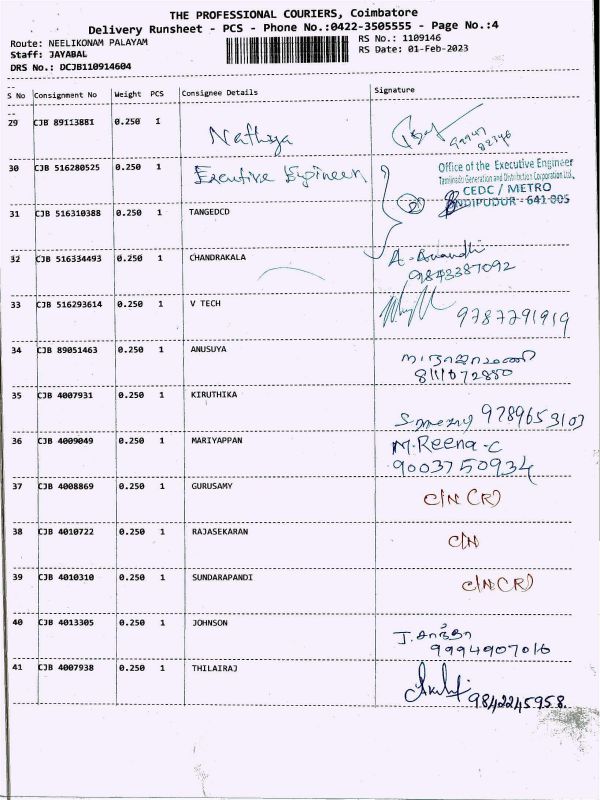 THE PROFESSIONAL COURIERS, Coimbatore
Delivery Runsheet - PCS - Phone No.:0422-3505555 - Page No.:4
Route: NEELIKONAM PALAYAM
RS No.: 1109146
Staff: JAYABAL
RS Date: 01-Feb-2023
DRS No.: DCJB110914604
S No Consignment No Weight PCS Consignee Details Signature
29 CJB 89113881 0.250 1 Nathiya
30 CJB 516280525 0.250 1 Executive Engineer
Office of the Executive Engineer
Tamilnadu Generation and Distribution Corporation Ltd.,
CEDC / METRO
641 005
31 CJB 516310388 0.250 1 TANGEDCD
32 CJB 516334493 0.250 1 CHANDRAKALA A. Anandhi
9843387092
33 CJB 516293614 0.250 1 V TECH 9787791919
34 CJB 89051463 0.250 1 ANUSUYA
8111072880
35 CJB 4007931 0.250 1 KIRUTHIKA 9789653103
36 CJB 4009049 0.250 1 MARIYAPPAN M.Reena-C
9003750934
37 CJB 4008869 0.250 1 GURUSAMY C/N (R)
38 CJB 4010722 0.250 1 RAJASEKARAN C/N
39 CJB 4010310 0.250 1 SUNDARAPANDI C/N (R)
40 CJB 4013305 0.250 1 JOHNSON J. சாந்தா
9994907016
41 CJB 4007938 0.250 1 THILAIRAJ 9842245958.